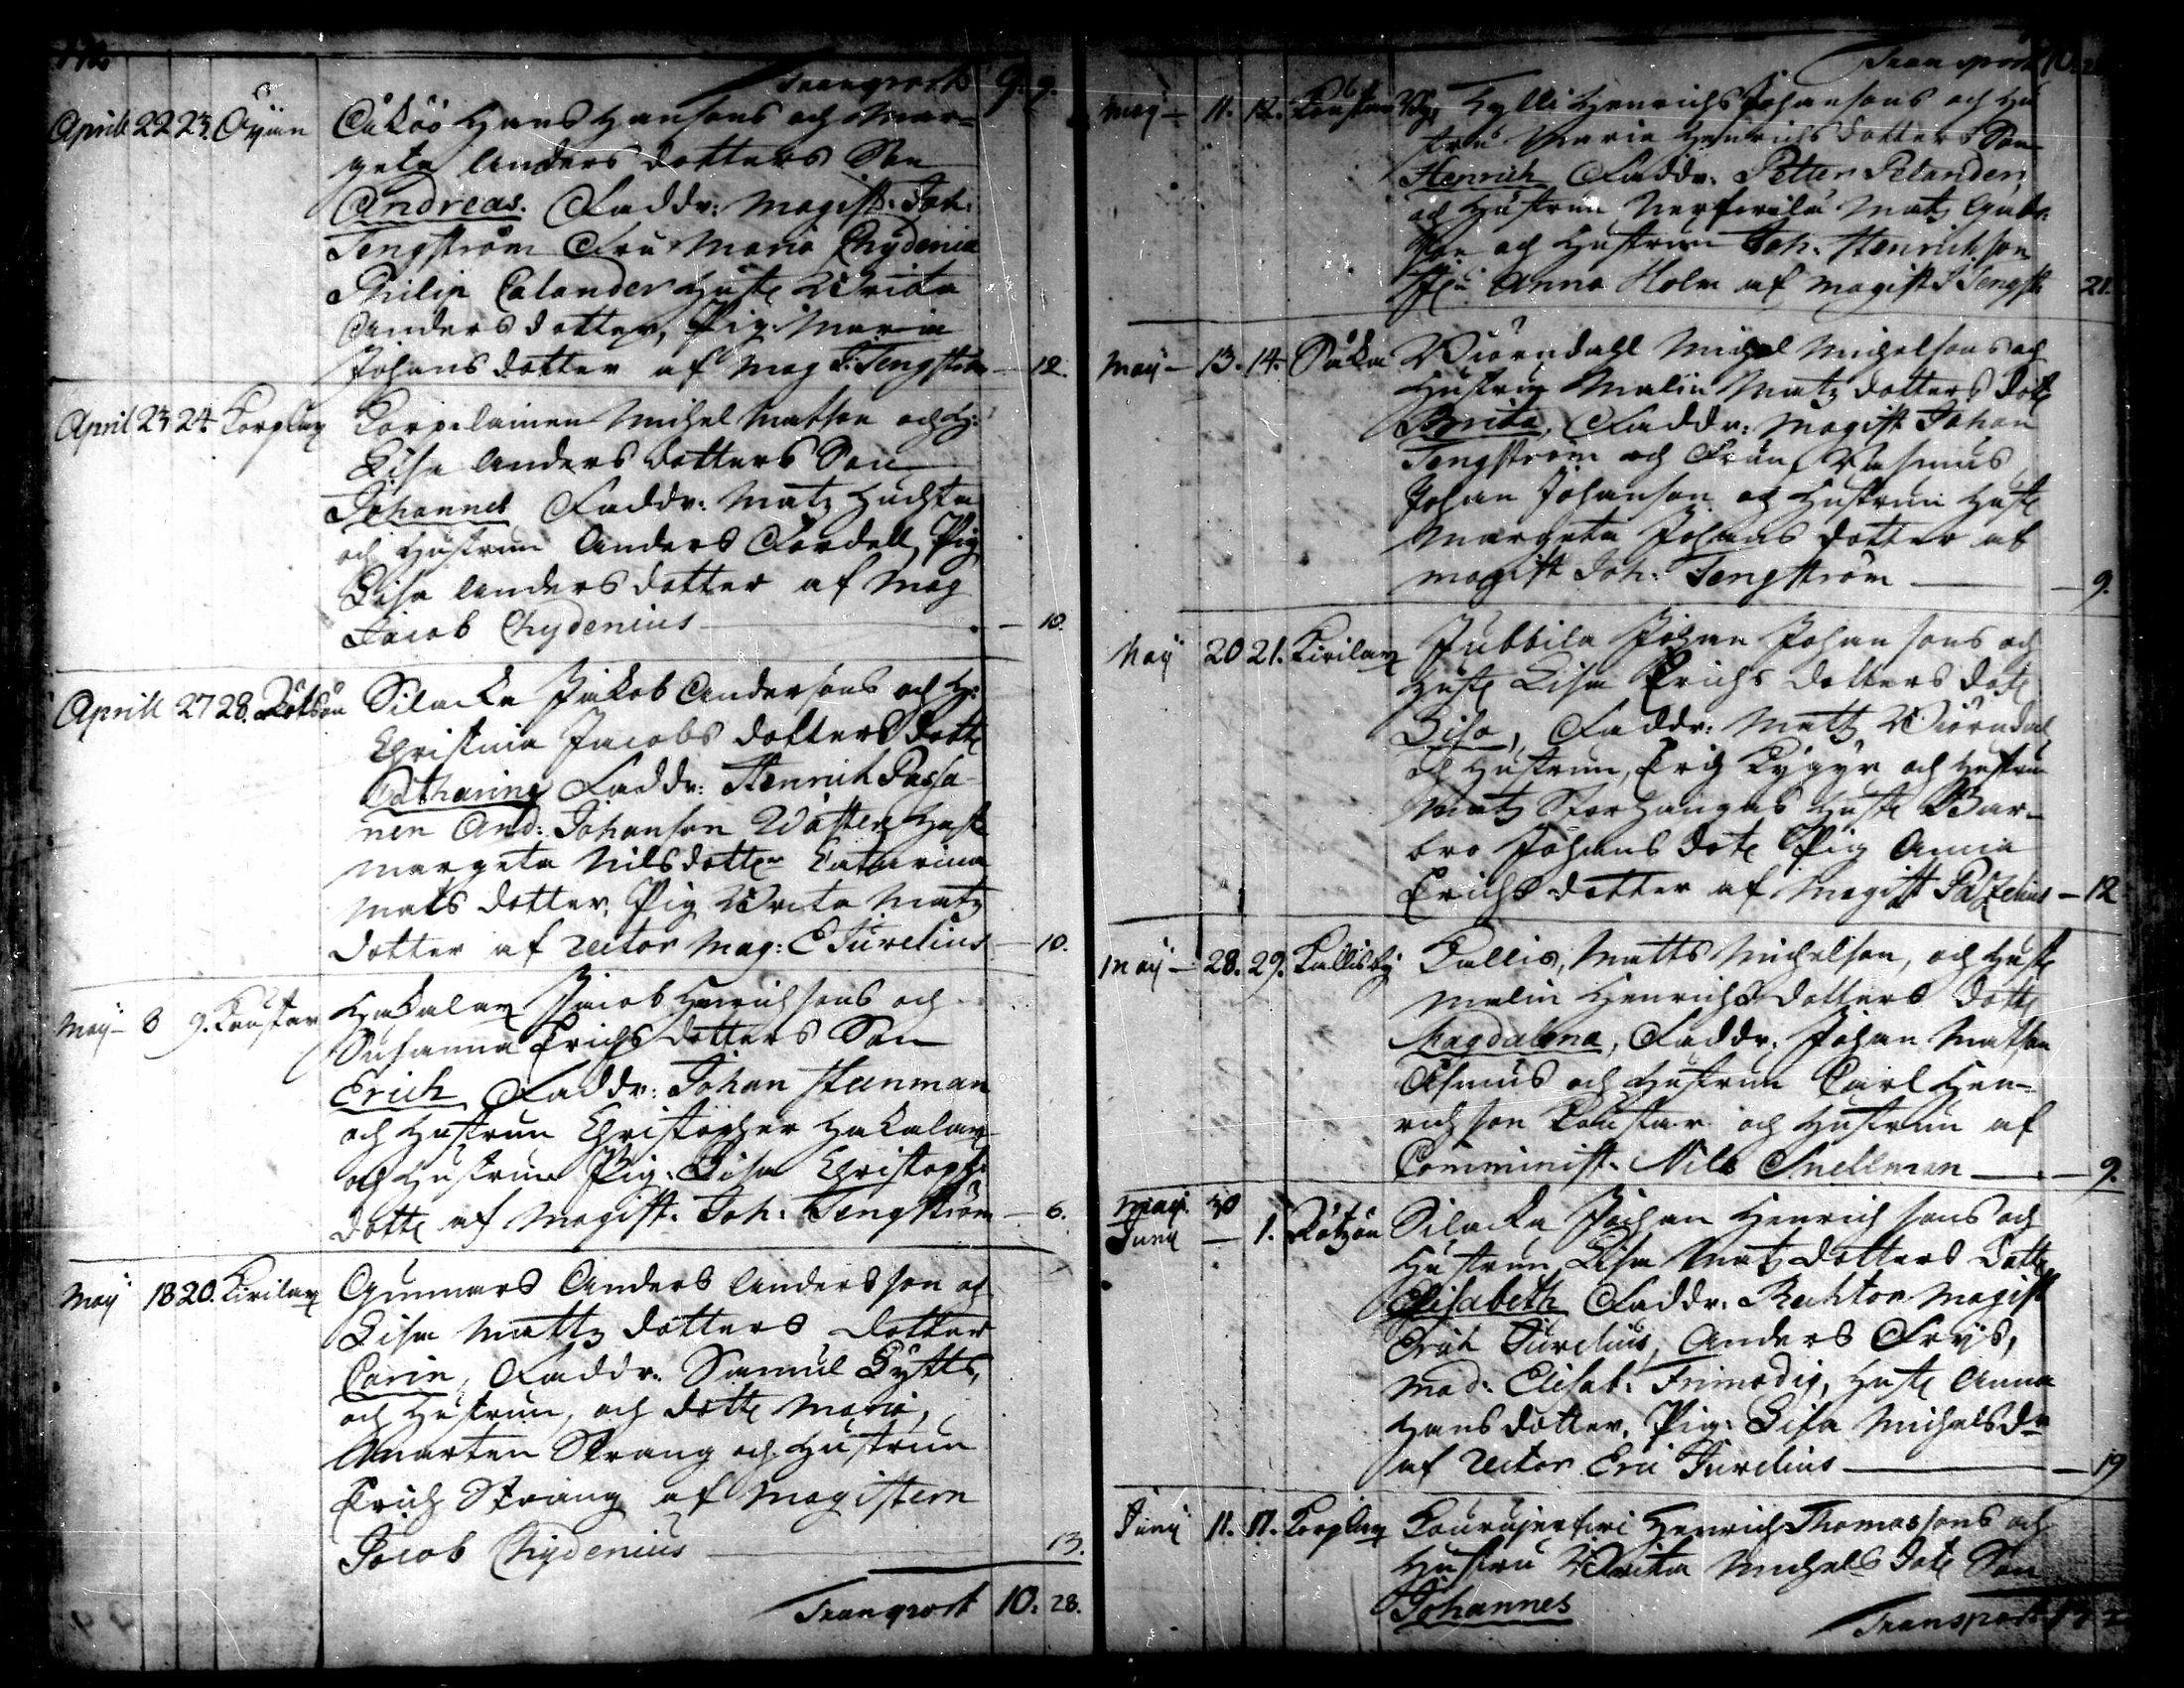 Transport 9. 9.
Aprill 22 23. Öijan Åköö Hans Hansons och Mar=
geta Andersdotters Son
Andreas. Faddr: Magist: Joh:
Tengström Fru Maria Chydenia
Philip Calander Hust Brita
Andersdotter, Pig: Maria
Johansdotter af Mag J: Tengström — 12.
April 23 24. Korplax Korpelainen Michel Matson och H:
Lisa Andersdotters Son
Johannes Faddr: Matz Huchta
och Hustrun Anders Fordell, Pig
Lisa Andersdotter af Mag
Jacob Chydenius — 10.
Aprill 27 28. Rötsön Silacka Jakob Andersons och H:
Christina Jacobsdotters dott
Catharina Faddr: Henrich Passa-
nen And: Johanson Wäster Hust
Margeta Nilsdotter Catarina
Matsdotter, Pig Brita Matz
dotter af Rector Mag: E Jurelius — 10.
Maij — 8 9. Koustar Hakalax Jacob Henrichsons och
Susanna Erichsdotters Son
Erich Faddr: Johan Stenman
och Hustrun Christopher Hakalax
och Hustrun Pig: Lisa Christoph:
dott af Magist: Joh: Tengström — 6.
Maij 18 20. Kirilax Gunnars Anders Andersson och
Lisa Mattz dotters dotter
Carin, Faddr: Samul Lytts,
och Hustrun, och dott Maria,
Marten Strang och Hustrun
Erich Strång af Magistern
Jacob Chydenius — 13.
Transport 10. 28.
Transport 10.
Maij — 11. 12. Koustar Kylli Henrichs Johansons och Hu
stru Maria Henrichsdotters Son
Henrich Faddr: Petter Pelander,
och Hustrun Matz
son och Hustrun Joh: Henrichson
Anna Holm af Magist J Tengst: 21.
Maij — 13. 14. Såka Biörndahl Michel Michelsons och
Hustru Malin Matzdotters dott
Brita, Faddr: Magist Johan
Tengström och Frun, Rasmus
Johan Johanson och Hustrun Hust
Margeta Johansdotter af
Magist Joh: Tengström — 9.
Maij 20 21. Kirilax Jubbila Johan Johansons och
Hust Lisa Erichsdotters dott
Lisa, Faddr: Matz Biörndal
och Hustrun, Erich och Hustrun
Matz Storhangas Hust Bar-
bro Johans dott Pig Anna
Erichsdotter af Magist Pazelius — 12
Maij — 28. 29. Kallisby Kallis, Matts Michelson, och Hust
Malin Henrichsdotters dott
Magdalena, Faddr: Johan Matson
Asmus och Hustrun Carl Hen-
richson Koustar och Hustrun af
Comminist: Nils Snellman — 9.
Maij 30
Junij — 1. Rötzön Silacka Johan Henrichsons och
Hustrun Lisa Matzdotters Dott
Elisabeth Faddr: Rehtor Magist
Erich Jurelius, Anders Frijs,
Mad: Elisab: Frimodig, Hust Anna
Hansdotter, Pig: Lisa Michelsdr
af Rector Eric Jurelius — 19
Junij 11. 11. Korplax Henrich Thomassons och
Hustru Brita Michels dott Son
Johannes
Transport